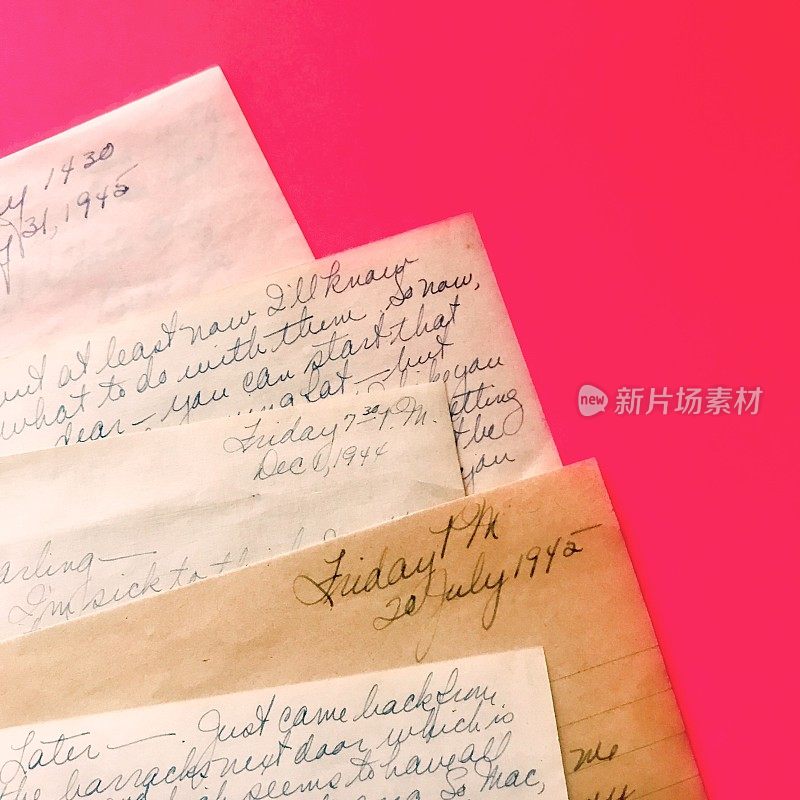 y 1430
y 31, 1945
but at least now I'll know
what to do with them. So now,
dear — you can start that
Sat — but
you
getting
the
you
Friday 7 30 P.M.
Dec 1, 1944
arling —
I'm sick to
Friday PM
20 July 1945
Later — Just came back from
the barracks next door which is
seems to have all
So Mac,
me
new 新片场素材